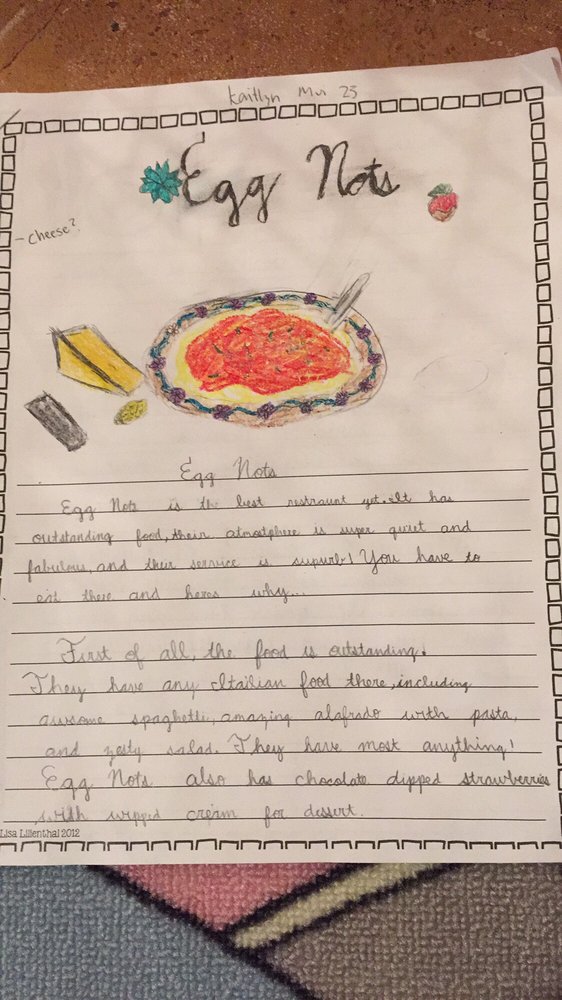 Kaitlyn Mui 23
Egg Nots
- cheese?
Egg Nots
Egg Nots is the best restraunt yet. It has
outstanding food, their atmostphere is super quiet and
fabulous, and their service is supurb! You have to
eat there and heres why...
First of all, the food is outstanding.
They have any Itailian food there, including
awsome spaghetti, amazing alafrado with pasta,
and zesty salad. They have most anything!
Egg Nots also has chocolate dipped strawberries
with wipped cream for dessert.
Lisa Lilienthal 2012